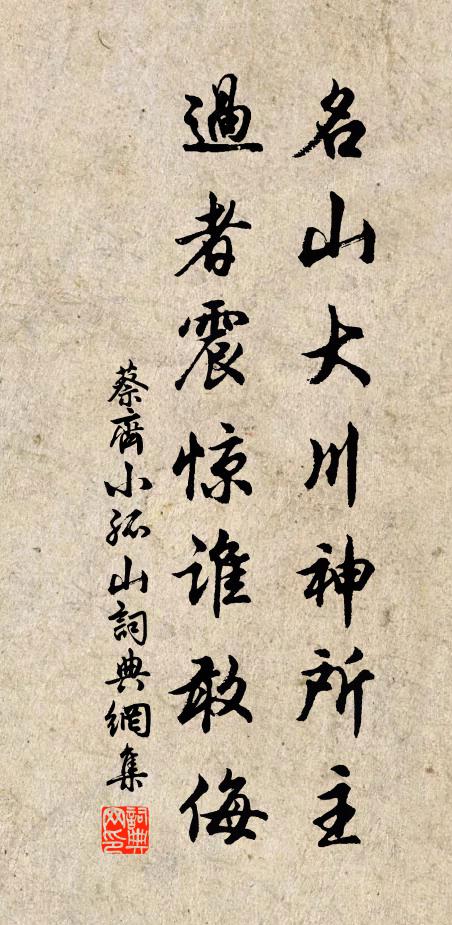 名山大川神所主
過者震惊誰敢侮
蔡齊小孤山詞典網集
詞典網印